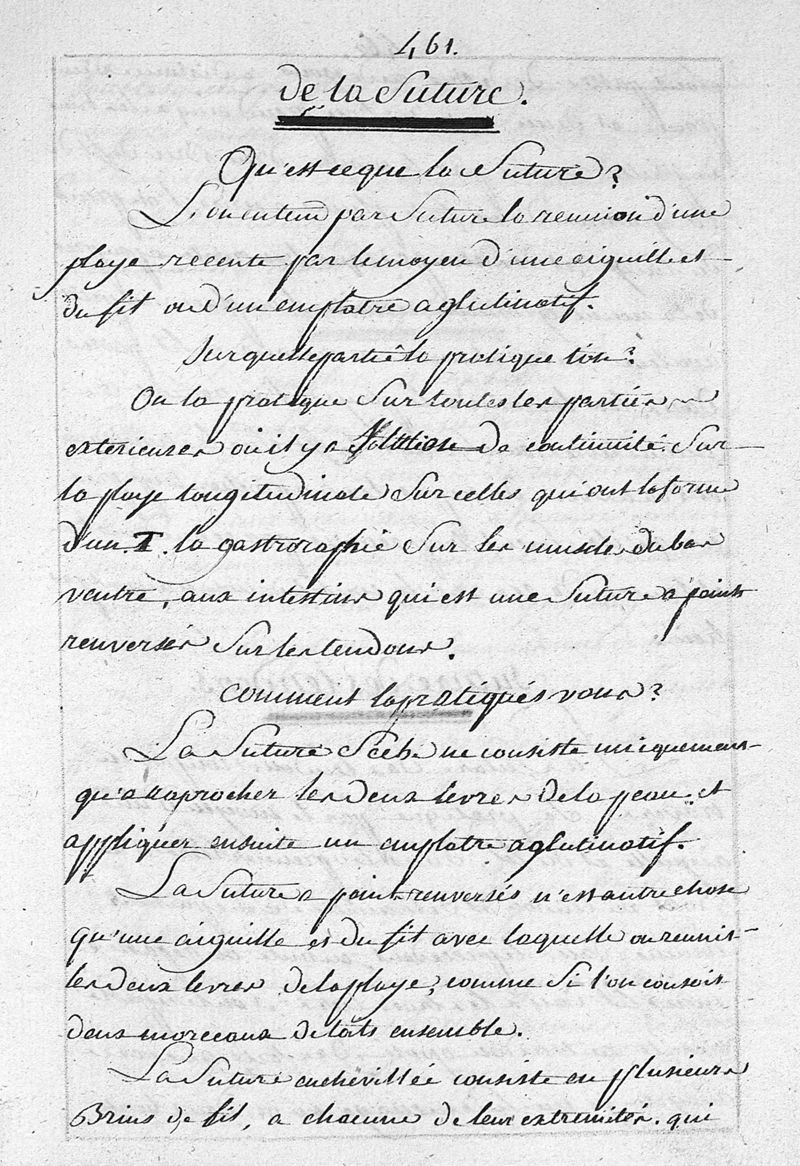 461.
de la Suture.
Qu'est ce que la Suture?
L'on entend par Suture la reunion d'une
playe recente par le moyen d'une aiguille et
du fil ou d'un emplatre aglutinatif.
Sur quelle partie la pratique t'on?
On la pratique Sur toutes les parties
exterieures où il y a Solution de continuité. Sur
la playe longitudinale Sur celles qui ont la forme
d'un T. la gastroraphie Sur les muscles du bas
ventre, aux intestins qui est une Suture a points
renversés Sur les tendons.
Comment la pratiqués vous?
La Suture Seche ne consiste uniquement
qu'a raprocher les deux levres de la peau et
appliquer ensuite un emplatre aglutinatif.
La Suture a points renversés n'est autre chose
qu'une aiguille et du fil avec laquelle on reunit
les deux levres de la playe, comme Si l'on cousoit
deux morceaux de bâts ensemble.
La Suture enchevillée consiste en plusieurs
Brins de fil, a chacune de leur extremités. qui